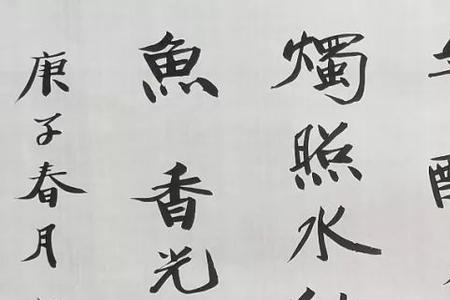 燭照水
魚香光
庚子春月